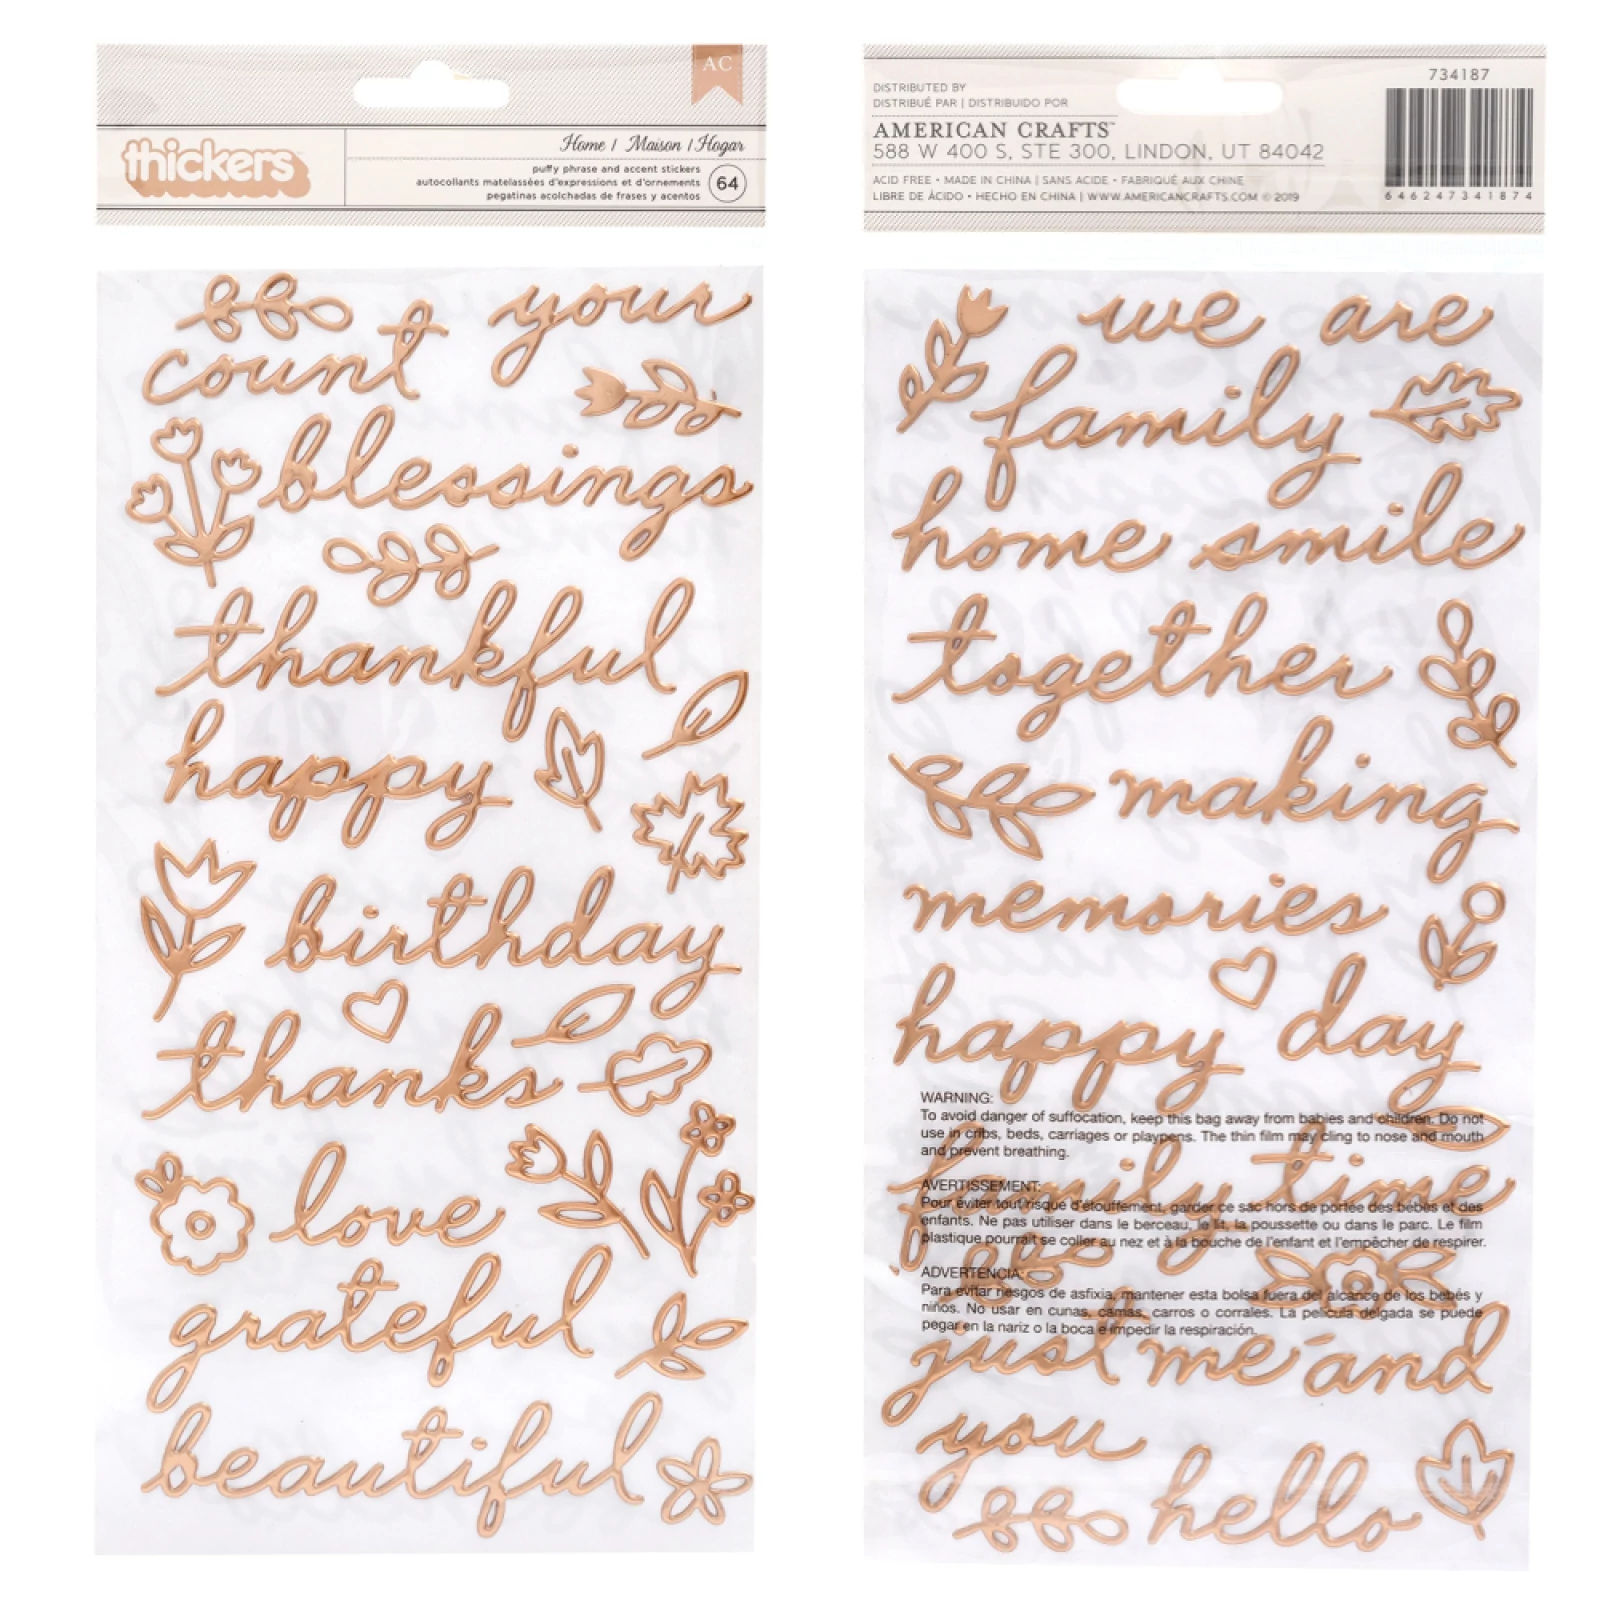 AC
thickers
Home / Maison / Hogar
puffy phrase and accent stickers
autocollants matelassées d'expressions et d'ornements
pegatinas acolchadas de frases y acentos
64
your
count
blessings
thankful
happy
birthday
thanks
love
grateful
beautiful
734187
DISTRIBUTED BY
DISTRIBUÉ PAR | DISTRIBUIDO POR
AMERICAN CRAFTS™
588 W 400 S, STE 300, LINDON, UT 84042
ACID FREE • MADE IN CHINA | SANS ACIDE • FABRIQUÉ AUX CHINE
LIBRE DE ÁCIDO • HECHO EN CHINA | WWW.AMERICANCRAFTS.COM © 2019
646247341874
we are
family
home smile
together
making
memories
happy day
WARNING:
To avoid danger of suffocation, keep this bag away from babies and children. Do not
use in cribs, beds, carriages or playpens. The thin film may cling to nose and mouth
and prevent breathing.
family time
AVERTISSEMENT:
Pour éviter tout risque d'étouffement, garder ce sac hors de portée des bébés et des
enfants. Ne pas utiliser dans le berceau, le lit, la poussette ou dans le parc. Le film
plastique pourrait se coller au nez et à la bouche de l'enfant et l'empêcher de respirer.
ADVERTENCIA:
Para evitar riesgos de asfixia, mantener esta bolsa fuera del alcance de los bebés y
niños. No usar en cunas, camas, carros o corrales. La película delgada se puede
pegar en la nariz o la boca e impedir la respiración.
just me and
you
hello